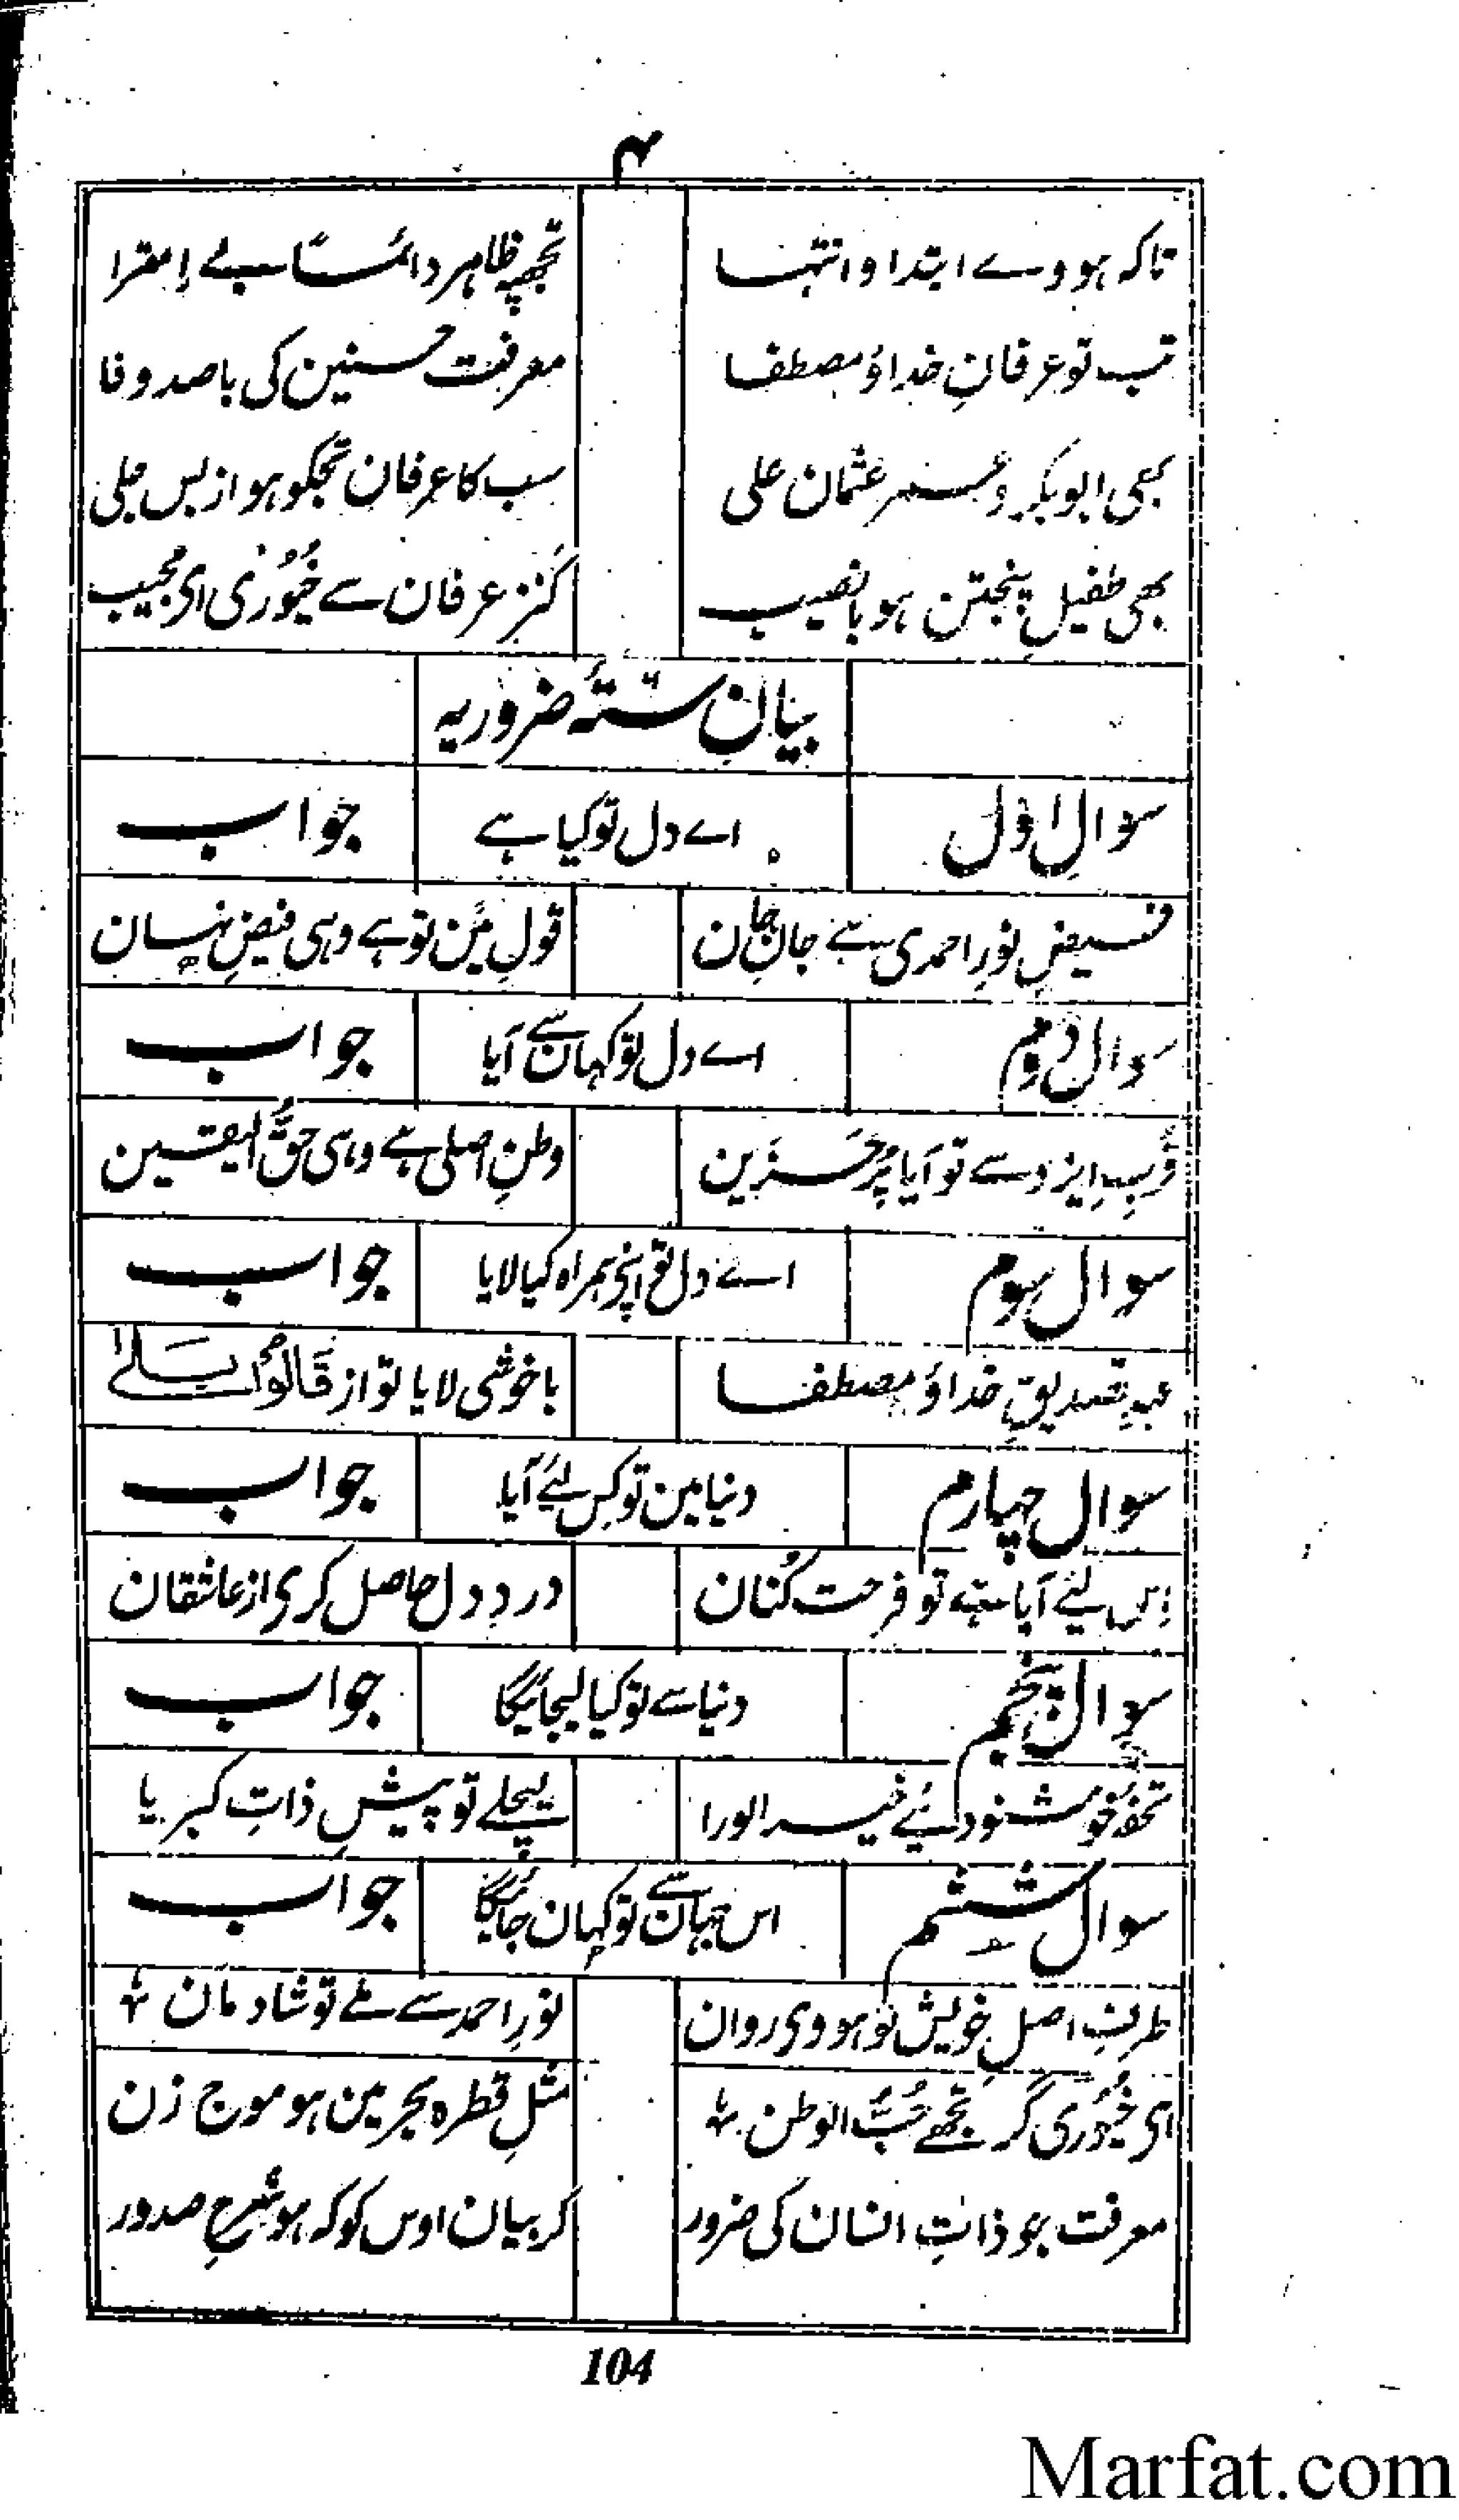 ۴
تاکہ ہووے ابتدا و انتہا تجھپہ ظاہر دائماً بے امترا
تب تو عرفانِ خدا ؤ مصطفا معرفت حسنین کی با صد وفا
بھی ابوبکر و عمر عثمان علی سب کا عرفان تجکو ہو از بس جلی
بھی طفیلِ پنجتن ہو با نصیب کنزِ عرفان سے خیُوری ای مجیب
بیانِ ستّۂ ضروریہ
سوالِ اول اے دل تو کیا ہے جواب
فیضِ نورِ احمدی سے جانِ جان قولِ مَن تو ہے وہی فیضِ نہان
سوال دوم اے دل تو کہان سے آیا جواب
قُربِ ایزد سے تو آیا پُر حزین وطنِ اصلی ہے وہی حقُّ الیقین
سوال سوم اے دل تو اپنے ہمراہ کیا لایا جواب
عہدِ تصدیقِ خدا ؤ مصطفا با خوشی لایا تو از قَالُوا بَلٰے
سوال چہارم دنیا مین تو کس لئے آیا جواب
اِس لئے آیا ہے تو فرحت کُنان دردِ دل حاصل کری از عاشقان
سوال پنجم دنیا سے تو کیا لیجائیگا جواب
تحفۂ خوشنودئے خیر الورا لیچلے تو پیشِ ذاتِ کبریا
سوال ششم اس جہان سے تو کہان جائیگا جواب
طرفِ اصلِ خویش تو ہووی روان نورِ احمد سے ملے تو شادمان
ای خیُوری گر تجھے حُبُّ الوطن مثلِ قطرہ بحر مین ہو موج زن
معرفت ہو ذاتِ انسان کی ضرور کر بیان اوس کو کہ ہو شرحِ صدور
104
Marfat.com